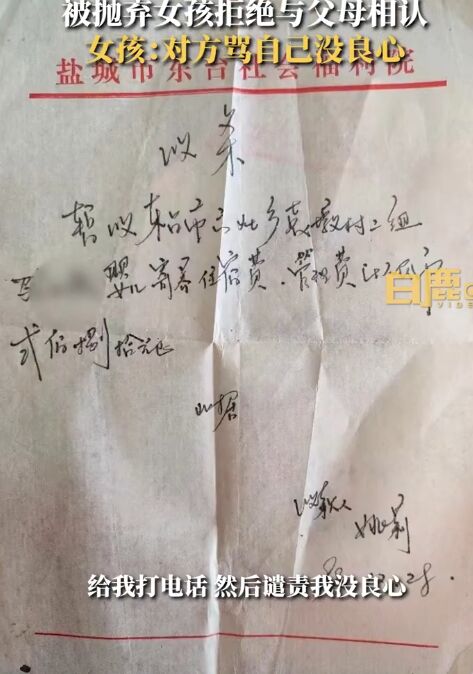 被抛弃女孩拒绝与父母相认
女孩:对方骂自己没良心
盐城市东台社会福利院
收条
暂收东台市
村二组
婴儿寄养住宿费、管理费
弍佰捌拾元
此据
收款人
姚莉
白鹿
VIDEO
给我打电话 然后谴责我没良心